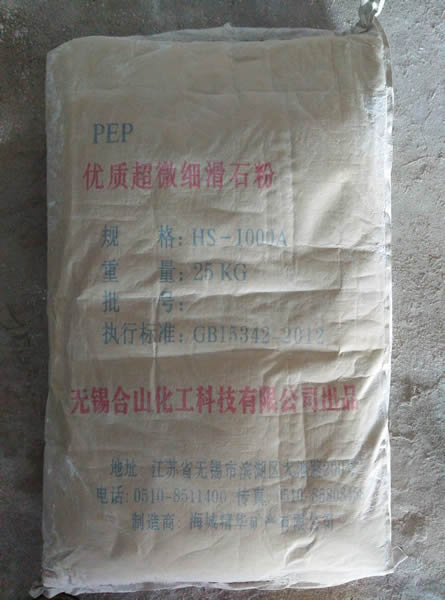 PEP
优质超微细滑石粉
规 格: HS-1000A
重 量: 25 KG
批 号:
执行标准: GB15342-2012
无锡合山化工科技有限公司出品
地址 江苏省无锡市滨湖区大池路
电话: 0510-8511400 传真
制造商: 海城精华矿产有限公司